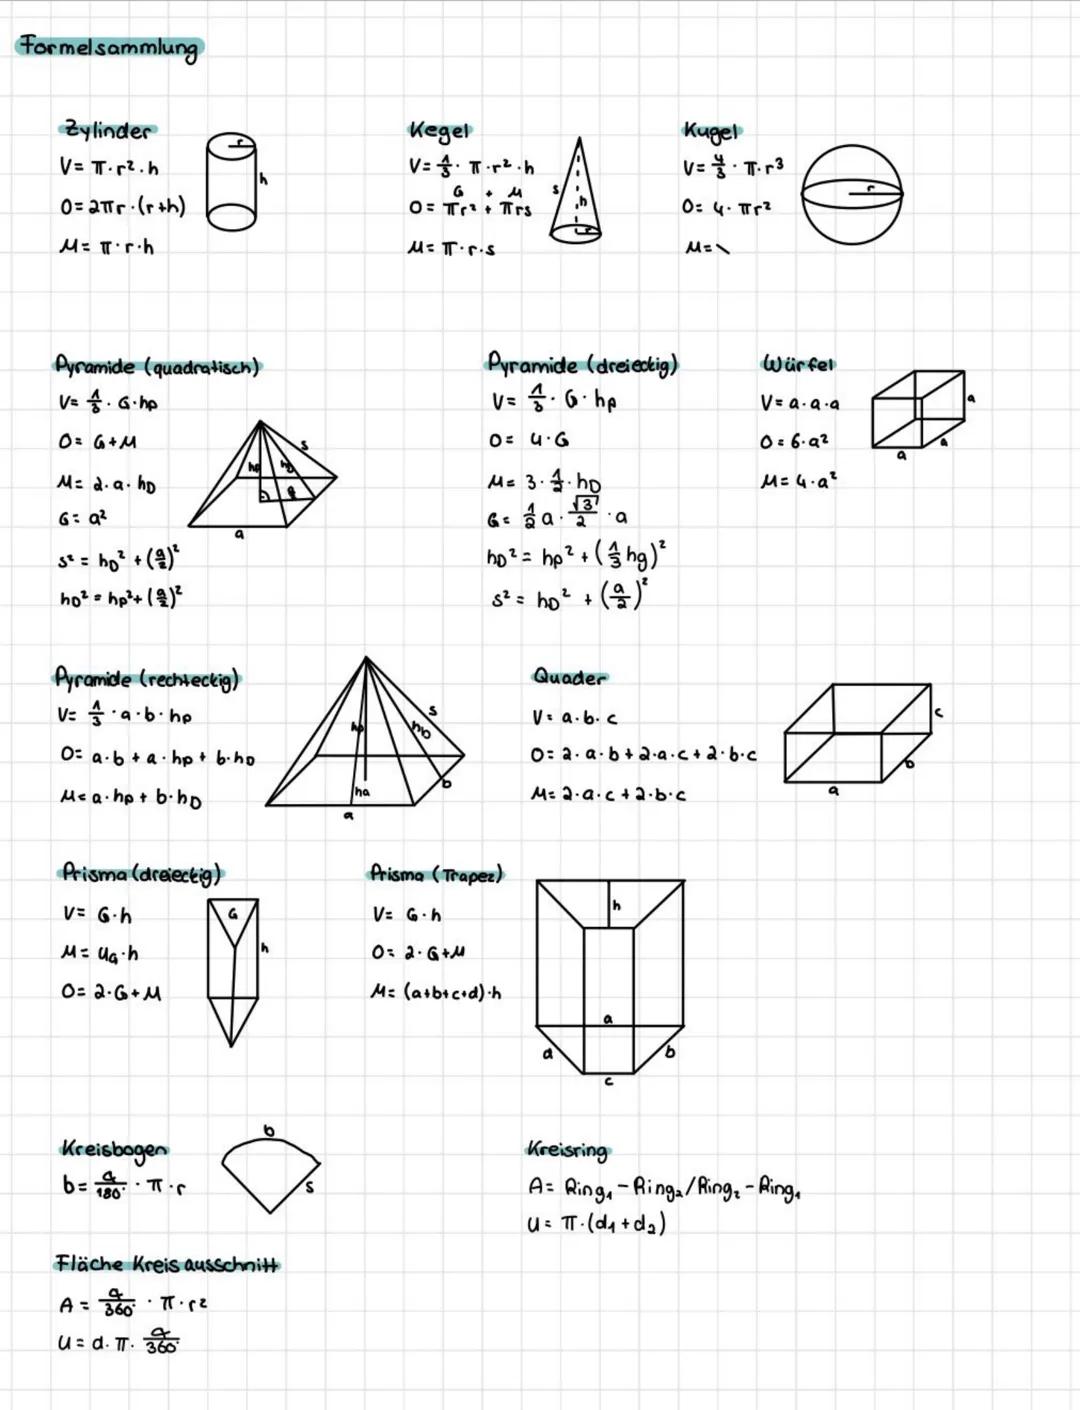 Formelsammlung
Zylinder
V= π·r²·h
O=2πr·(r+h)
M= π·r·h
r
h
Kegel
V= 1/3 · π·r²·h
G + M
O= πr² + πrs
M= π·r·s
s
h
r
Kugel
V= 4/3 · π·r³
O= 4· πr²
M= \
r
Pyramide (quadratisch)
V= 1/3 · G·hp
O= G+M
M= 2·a·hD
G= a²
s² = hD² + (a/2)²
hD² = hp² + (a/2)²
s
hp
hD
a
Pyramide (dreieckig)
V= 1/3 · G·hp
O= 4·G
M= 3·1/2·hD
G= 1/2 a · √3/2 · a
hD² = hp² + (1/3 hg)²
s² = hD² + (a/2)²
Würfel
V= a·a·a
O= 6·a²
M= 4·a²
a
a
a
Pyramide (rechteckig)
V= 1/3 · a·b·hp
O= a·b + a·hp + b·hD
M= a·hp + b·hD
s
hp
hD
ha
b
a
Quader
V= a·b·c
O= 2·a·b + 2·a·c + 2·b·c
M= 2·a·c + 2·b·c
c
b
a
Prisma (dreieckig)
V= G·h
M= uG·h
O= 2·G+M
G
h
Prisma (Trapez)
V= G·h
O= 2·G+M
M= (a+b+c+d)·h
h
a
d
b
c
Kreisbogen
b= α/180° · π·r
b
s
Kreisring
A= Ring₁ - Ring₂/Ring₂ - Ring₁
U= π·(d₁+d₂)
Fläche Kreisausschnitt
A = α/360° · π·r²
U = d·π· α/360°